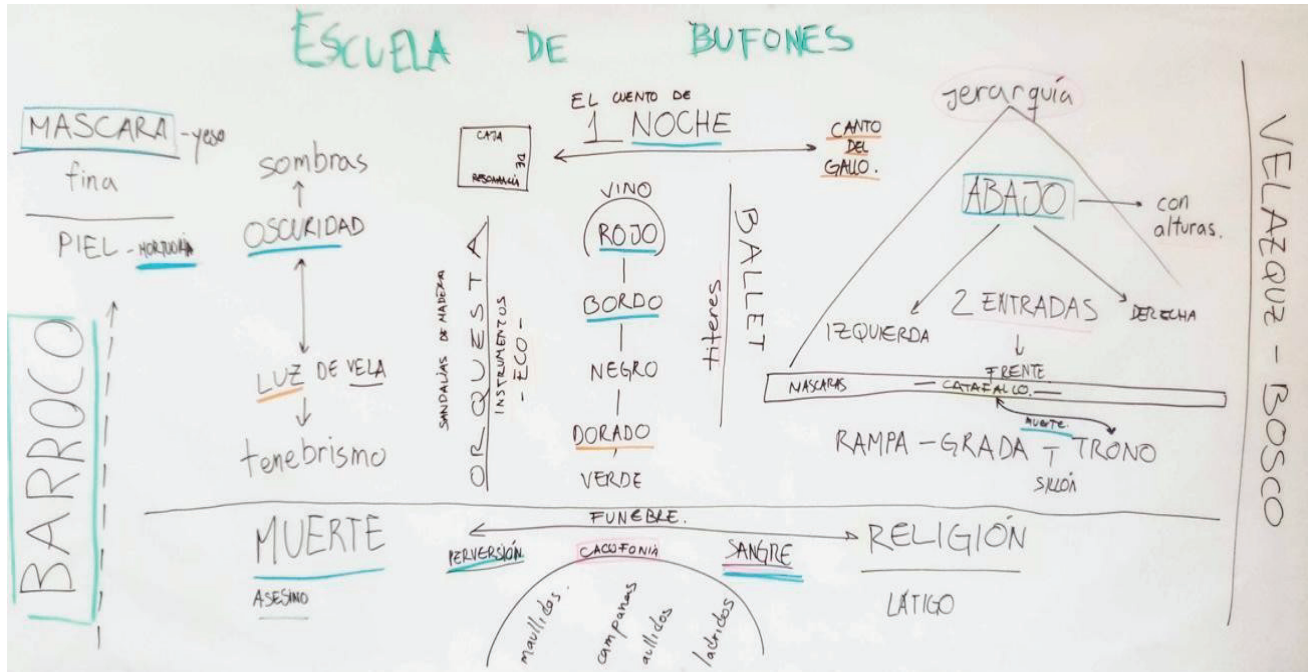 ESCUELA DE BUFONES
MASCARA - yeso
fina
PIEL - MORTUORIA
BARROCO
sombras
OSCURIDAD
LUZ DE VELA
tenebrismo
CAJA
DE
RESONANCIA
EL CUENTO DE
1 NOCHE
CANTO
DEL
GALLO.
SANDALIAS DE MADERA
ORQUESTA
INSTRUMENTOS
- ECO -
VINO
ROJO
BORDO
NEGRO
DORADO
VERDE
BALLET
titeres
Jerarquía
ABAJO
con
alturas.
2 ENTRADAS
IZQUIERDA
DERECHA
FRENTE
MASCARAS
- CATAFALCO. -
MUERTE.
RAMPA - GRADA - TRONO
SILLÓN
VELAZQUZ - BOSCO
MUERTE
ASESINO
FUNEBRE.
PERVERSIÓN
CACOFONIA
SANGRE
maullidos.
campanas
aullidos
ladridos
RELIGIÓN
LÁTIGO